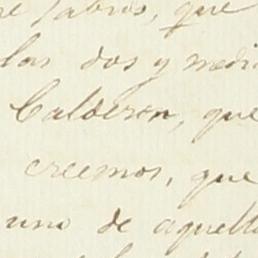 labios, que
las dos y medi
Calderon, que
creemos, que
uno de aquell